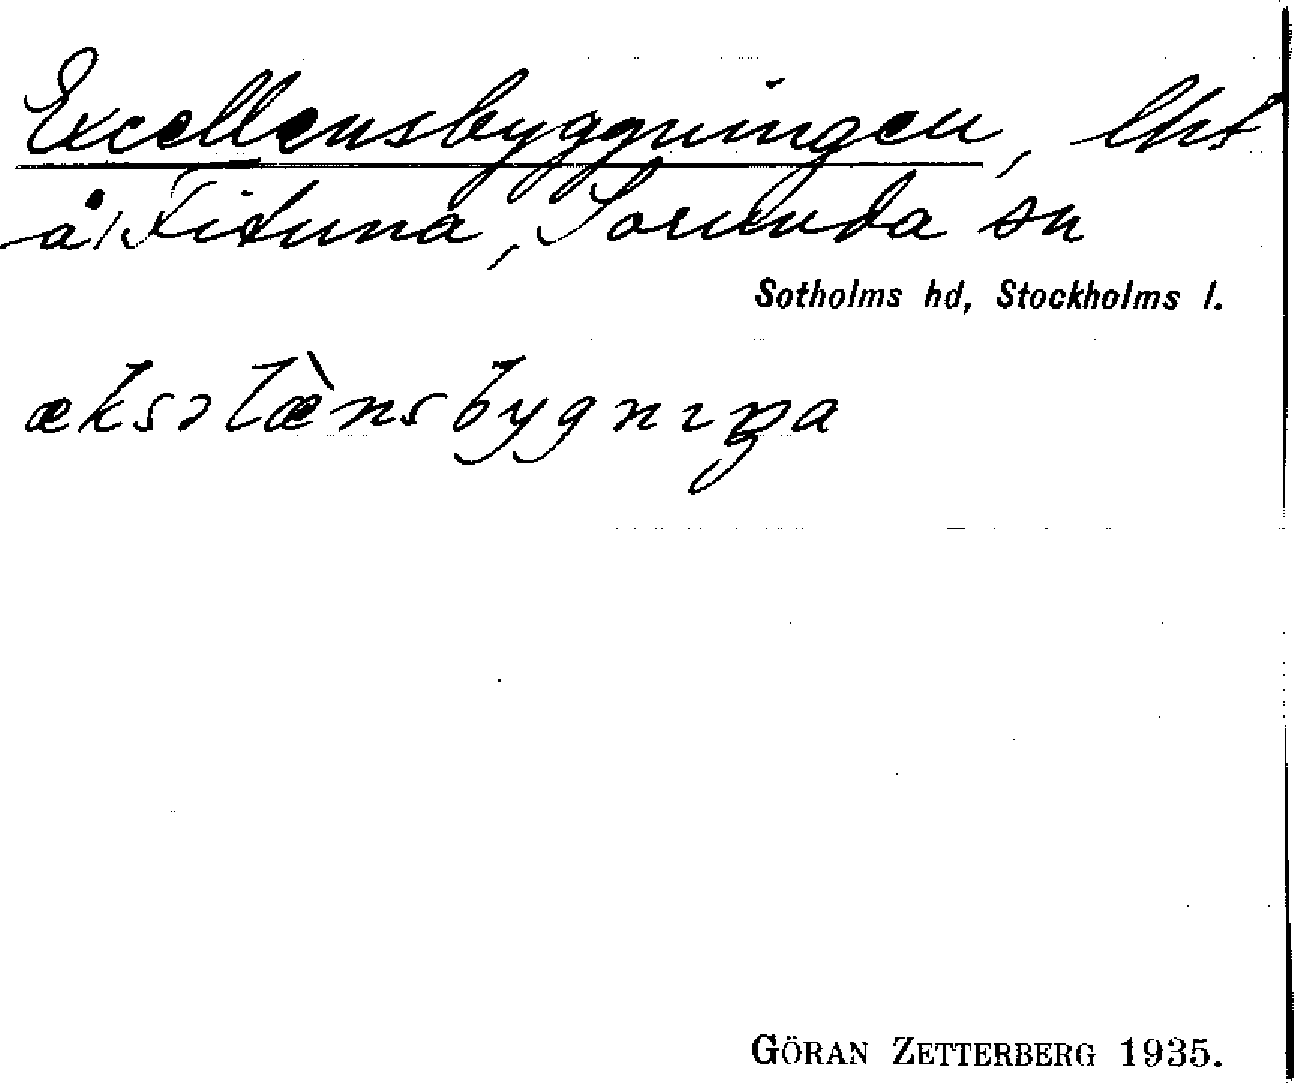 Excellensbyggningen, lht
å Fituna, Sorunda sn
Sotholms hd, Stockholms l.
æksəlæ̀nsbygnıŋa
GÖRAN ZETTERBERG 1935.